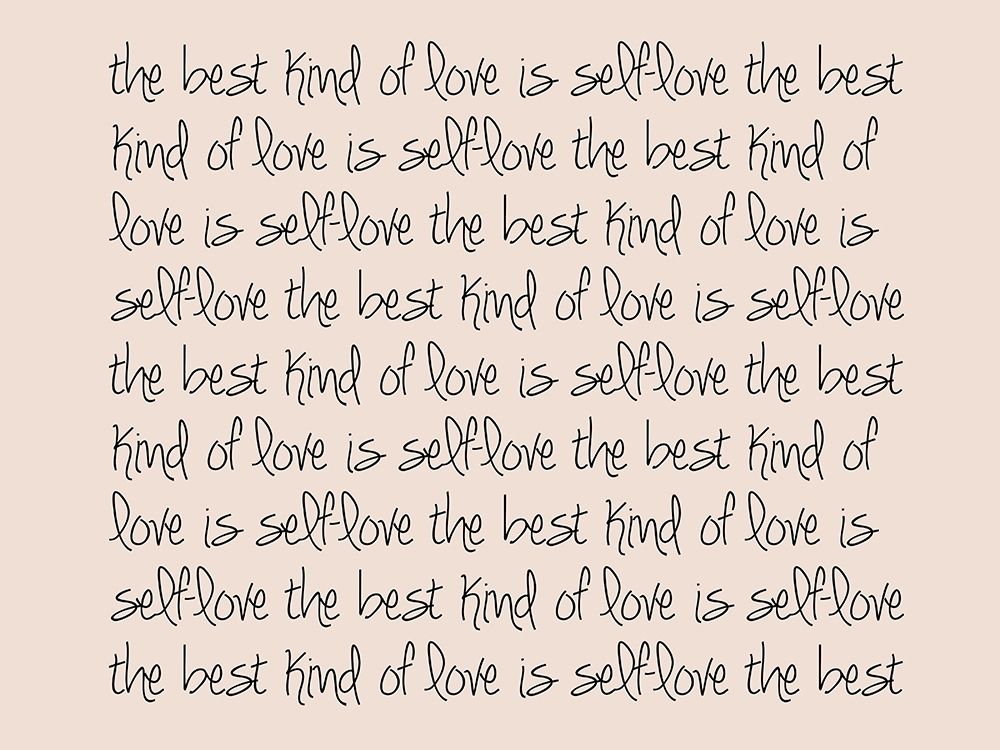 the best kind of love is self-love the best
kind of love is self-love the best kind of
love is self-love the best kind of love is
self-love the best kind of love is self-love
the best kind of love is self-love the best
kind of love is self-love the best kind of
love is self-love the best kind of love is
self-love the best kind of love is self-love
the best kind of love is self-love the best